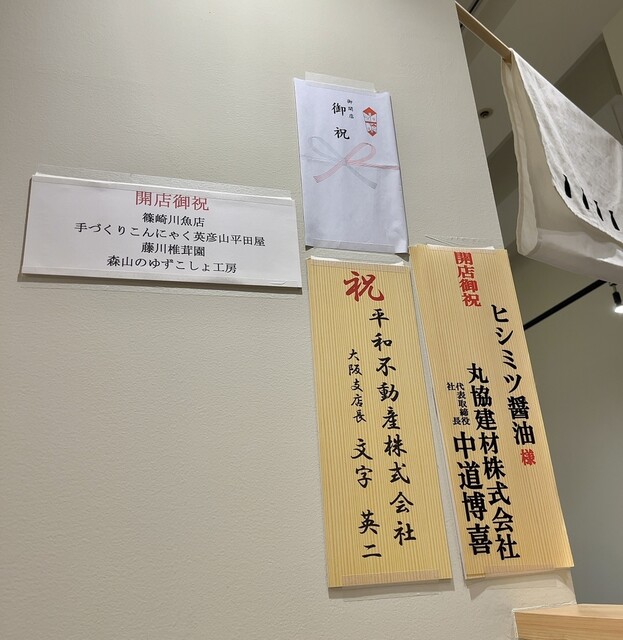 開店御祝
篠崎川魚店
手づくりこんにゃく英彦山平田屋
藤川椎茸園
森山のゆずこしょ工房
御開店
御祝
祝
平和不動産株式会社
大阪支店長 文字 英二
開店御祝
ヒシミツ醤油様
丸協建材株式会社
代表取締役社長 中道博喜